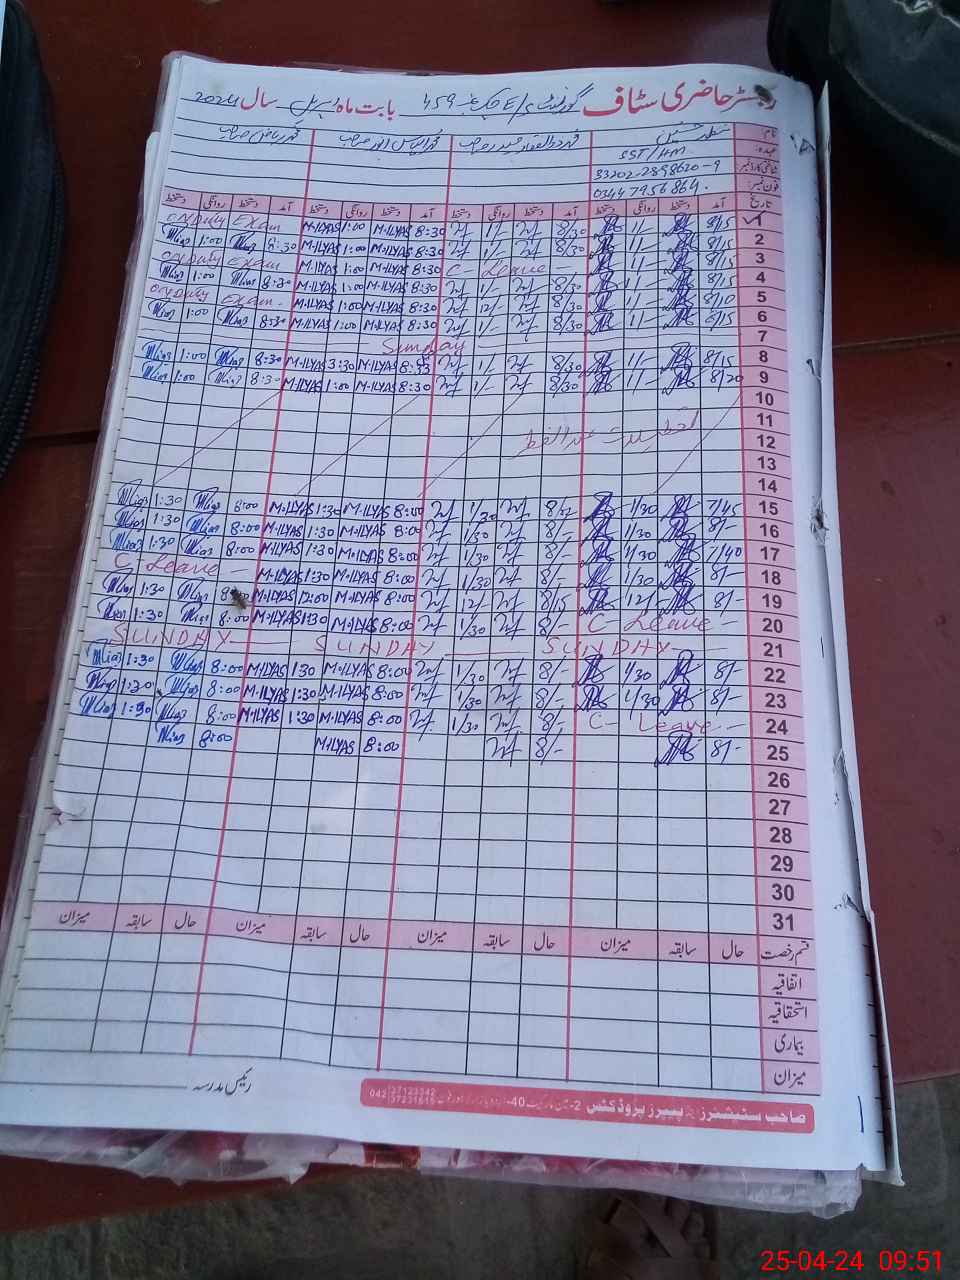 رجسٹر حاضری سٹاف گورنمنٹ چک نمبر 459 بابت ماہ اپریل سال 2024
نام محمد ذوالفقار حیدر صاحب محمد الیاس انور صاحب محمد ریاض صاحب
عہدہ SST/HM
شناختی کارڈ نمبر 33202-2898620-9
فون نمبر: 03447956864.
تاریخ آمد دستخط روانگی دستخط آمد دستخط روانگی دستخط آمد دستخط روانگی دستخط آمد دستخط روانگی دستخط
1 8/15 11/- 8/30 1/- 8:30 M.ILYAS 1:00 M.ILYAS Exam onDuty
2 8/15 11/- 8/30 1/- 8:30 M.ILYAS 1:00 M.ILYAS 8:30 1:00
3 8/15 11/- C - Leave - 8:30 M.ILYAS 1:00 M.ILYAS Exam onDuty
4 8/15 11/- 8/30 1/- 8:30 M.ILYAS 1:00 M.ILYAS 8:30 1:00
5 8/10 11/- 8/30 12/- 8:30 M.ILYAS 1:00 M.ILYAS Exam- onDuty
6 8/15 11/- 8/30 1/- 8:30 M.ILYAS 1:00 M.ILYAS 8:30 1:00
7 Sunday
8 8/15 11/- 8/30 1/- M.ILYAS 3:30 M.ILYAS 8:30 1:00
9 8/20 11/- 8/30 1/- 8:30 M.ILYAS 1:00 M.ILYAS 8:30 1:00
10
11 تعطیلات عید الفطر
12
13
14
15 7/45 1/30 1/30 8:00 M.ILYAS 1:30 M.ILYAS 8:00 1:30
16 8/- 1/30 8/- 1/30 8:00 M.ILYAS 1:30 M.ILYAS 8:00 1:30
17 7/40 1/30 8/- 1/30 8:00 M.ILYAS 1:30 M.ILYAS 8:00 1:30
18 8/- 1/30 8/- 1/30 8:00 M.ILYAS 1:30 M.ILYAS C Leave -
19 8/- 12/- 8/15 12/- 8:00 M.ILYAS 12:00 M.ILYAS 1:30
20 C- Leave - 8/- 1/30 8:00 M.ILYAS 1:30 M.ILYAS 8:00 1:30
21 SUNDAY SUNDAY SUNDAY
22 8/- 1/30 8/- 1/30 8:00 M.ILYAS 1:30 M.ILYAS 8:00 1:30
23 8/- 1/30 8/- 1/30 8:00 M.ILYAS 1:30 M.ILYAS 8:00 1:30
24 C- Leave - 8/- 1/30 8:00 M.ILYAS 1:30 M.ILYAS 8:00
25 8/- 8/- 8:00 M.ILYAS 8:00
26
27
28
29
30
31
قسم رخصت حال سابقہ میزان حال سابقہ میزان حال سابقہ میزان حال سابقہ میزان
اتفاقیہ
استحقاقیہ
بیماری
میزان
رئیس مدرسہ
صاحب سٹیشنرز پیپرز پروڈکٹس
042 37123342
25-04-24 09:51